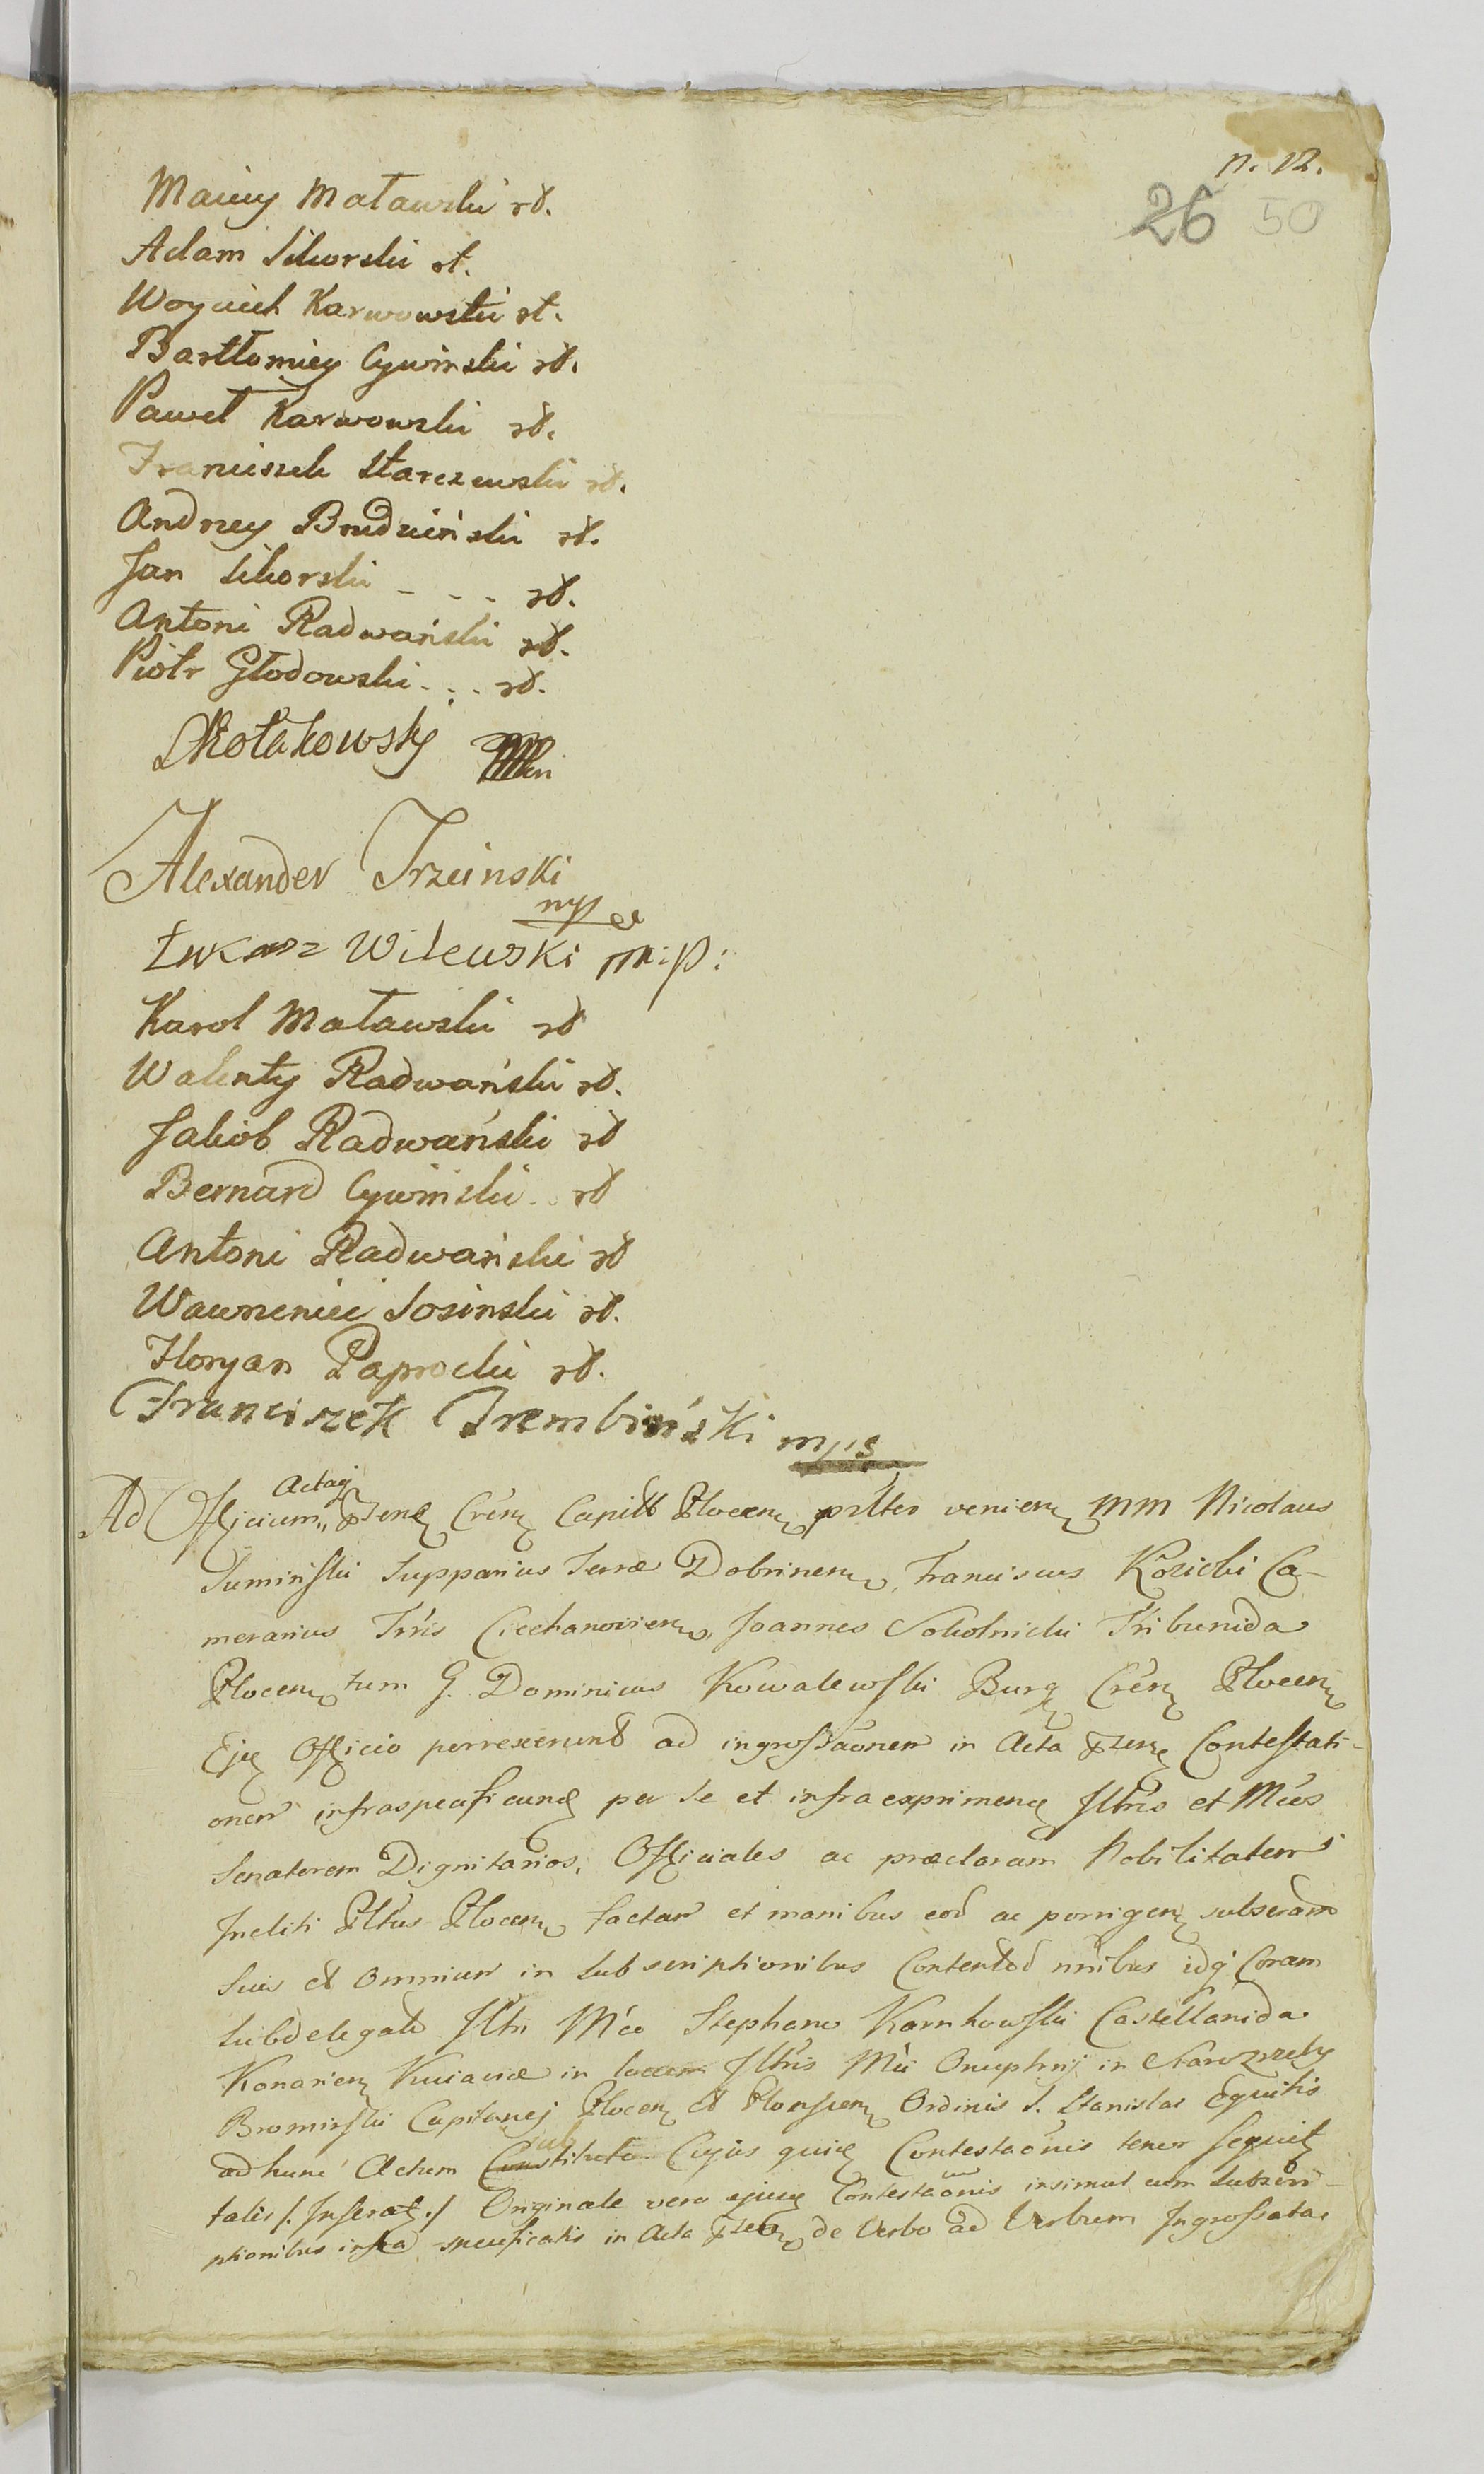 n. 12.
26 50
Maciey Matawski rd.
Adam Sikorski rt.
Woyciech Karwowski rt.
Bartłomiey Cywinski rd.
Paweł Karwowski rd.
Franciszek Starczewski rd.
Andrzey Brudziński rd.
Jan Sikorski - - - rd.
Antoni Radwański rd.
Piotr Głodowski - - - rd.
Kołakowsky
Alexander Trzcinski
mp
Łukasz Wilewski m:p:
Karol Matawski rd
Walenty Radwański rd.
Jakób Radwański rd
Bernard Cywiński rd
Antoni Radwański rd
Wawrzeniec Sosinski rd.
Floryan Paprocki rd.
Franciszek Trembiński mp
Actaq
Ad Officium, Crên Capitł Plocen, veniens MM Nicolaus
Suminski Supparius Terræ Dobrinen, Franciscus Kozicki Ca-
merarius Trris Ciechanovien, Joannes Sokolnicki Tribunida
Plocen tum G. Dominicus Kowalewski Burg Crên Plocen
Ejq Officio porrexerunt ad ingrossaonem in Acta Contestati-
onem infraspecificand per se et infraexprimend Illres et Mcos
Senatorem Dignitarios, Officiales ac præclaram Nobilitatem
Incliti Pltus Plocen factam et manibus eod ac porrigen
suis et omnium in subscriptionibus Content idq Coram
subdelegato Illri Mco Stephano Karnkowski Castellanida
Konarien Kuiaviæ in locum Illris Mci Onuphrij in
Brominski Capitanej Plocen et Plonscen Ordinis S. Stanislai Equitis
sub
ad hunc Actum Constituto Cujus quid Contestaonis tenor sequit
talis /. Inserat ./ Originale vero ejusq Contestaonis insimul cum subscri-
ptionibus infra specificatis in Acta de Verbo ad Verbum Ingrossata